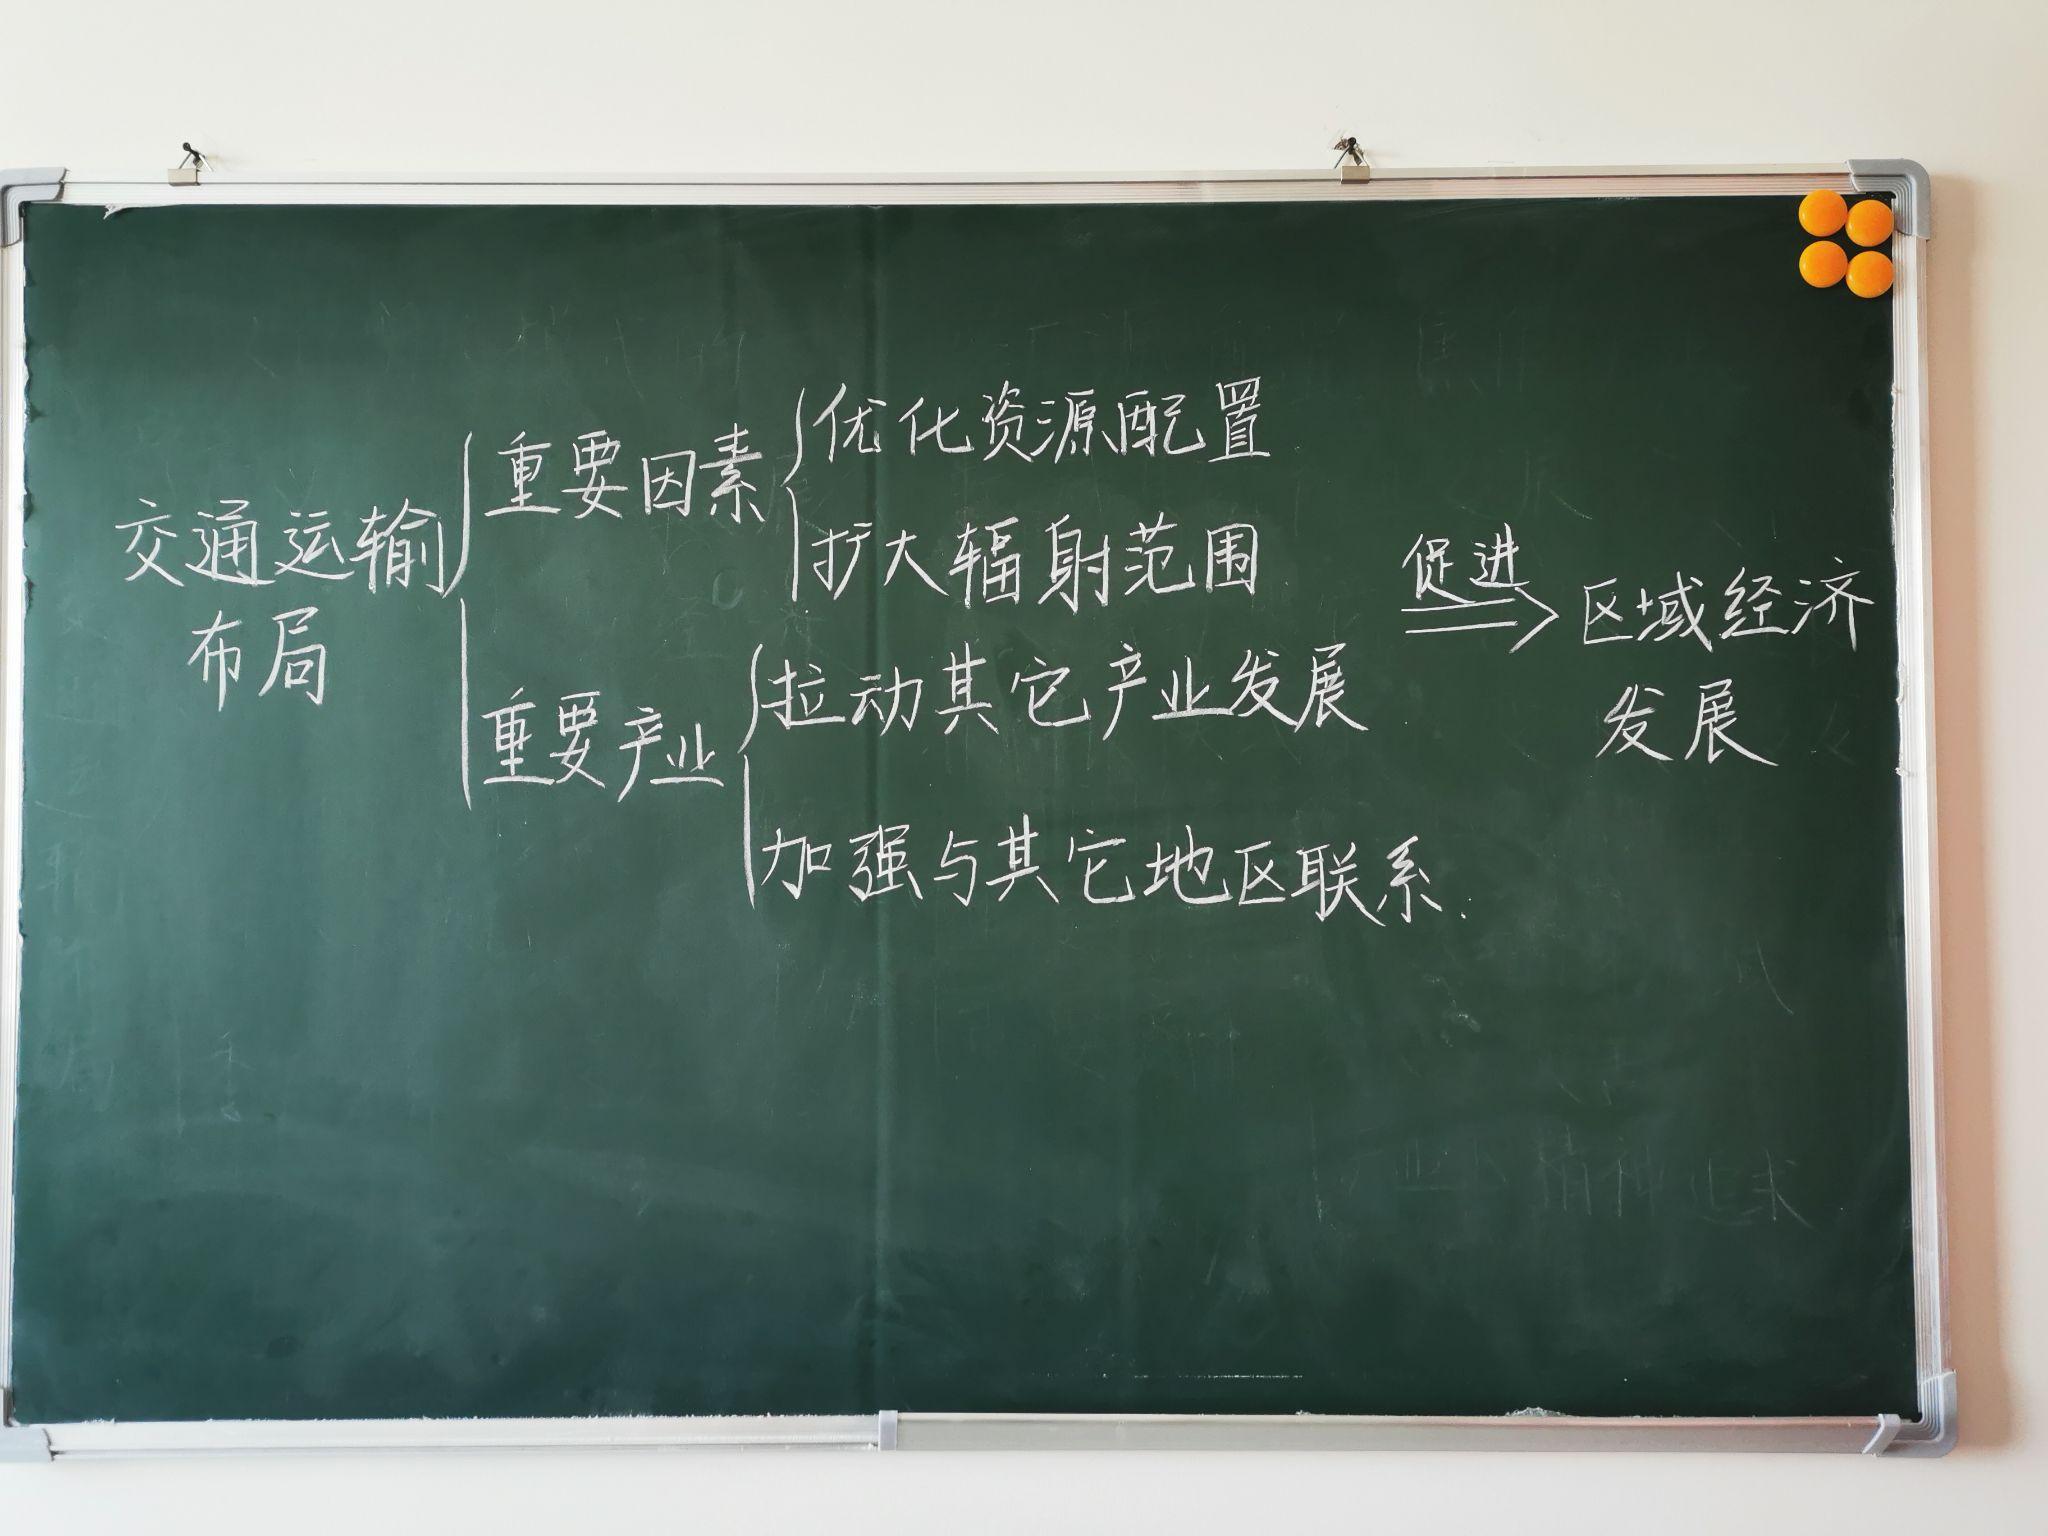 交通运输
布局
重要因素
优化资源配置
扩大辐射范围
重要产业
拉动其它产业发展
加强与其它地区联系.
促进
区域经济
发展